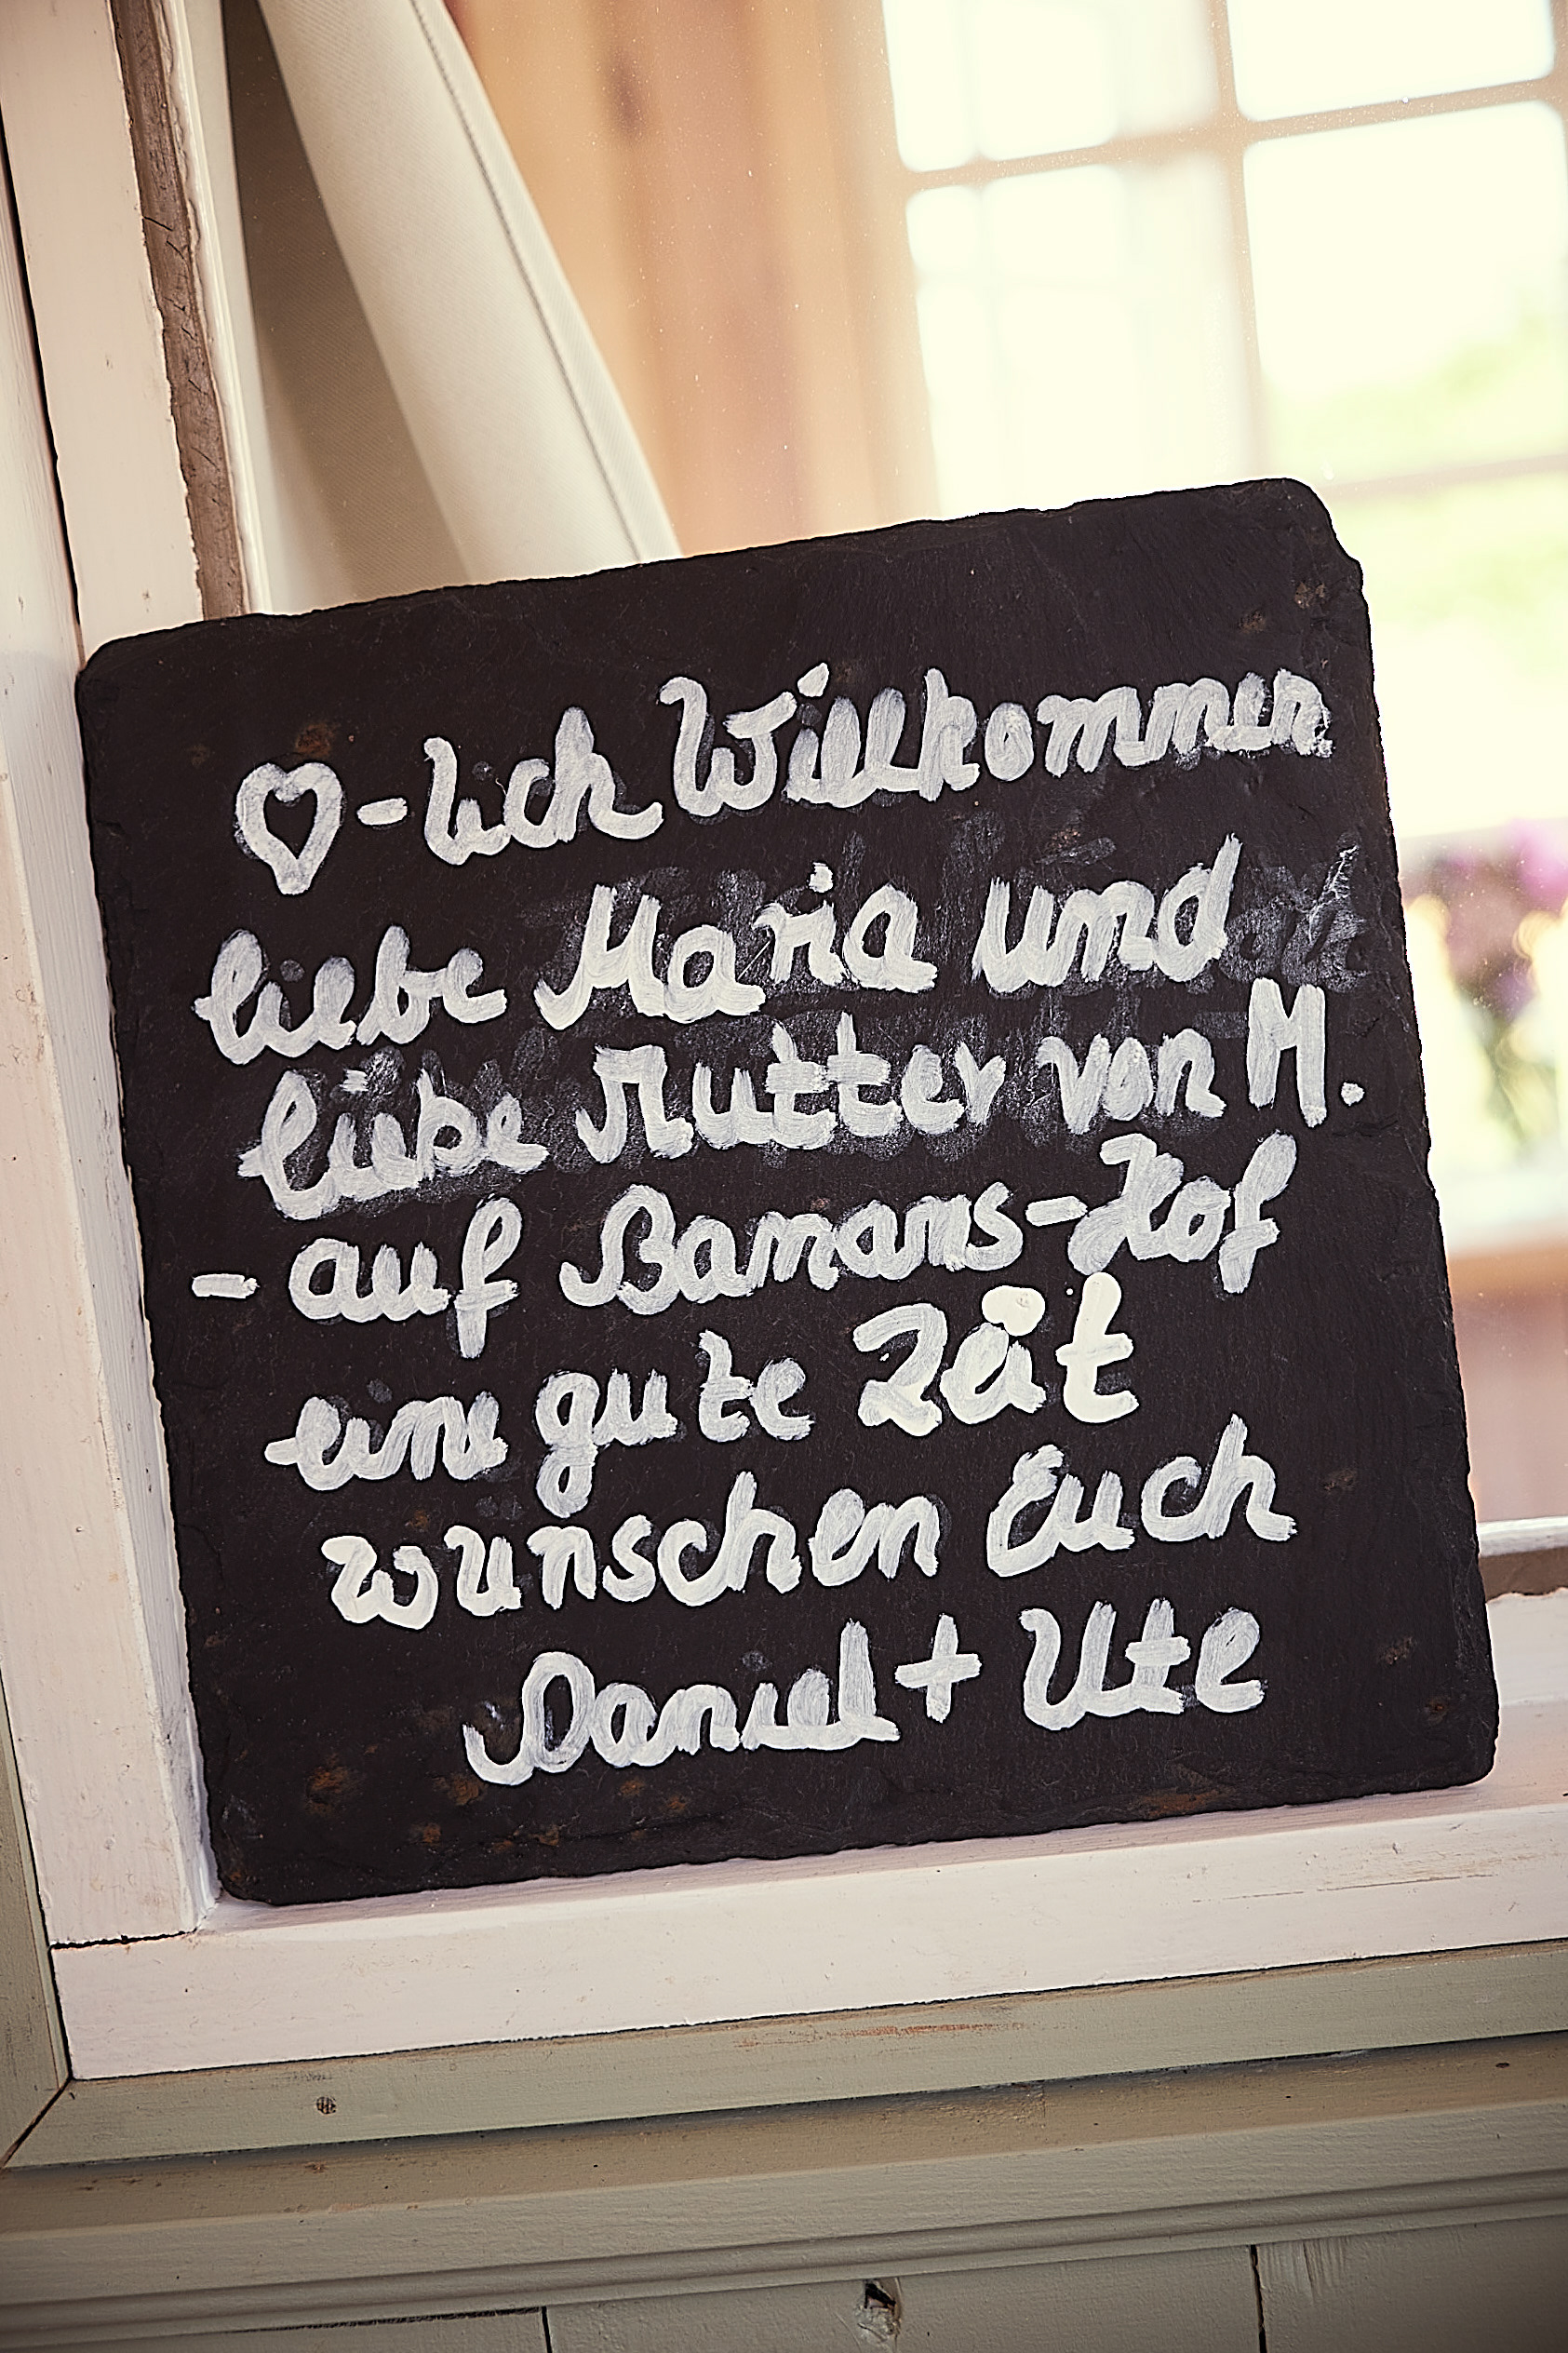 ♡-lich Willkommen
liebe Maria und
liebe Mutter von M.
- auf Bamans-Hof
eine gute Zeit
wünschen Euch
Daniel + Ute